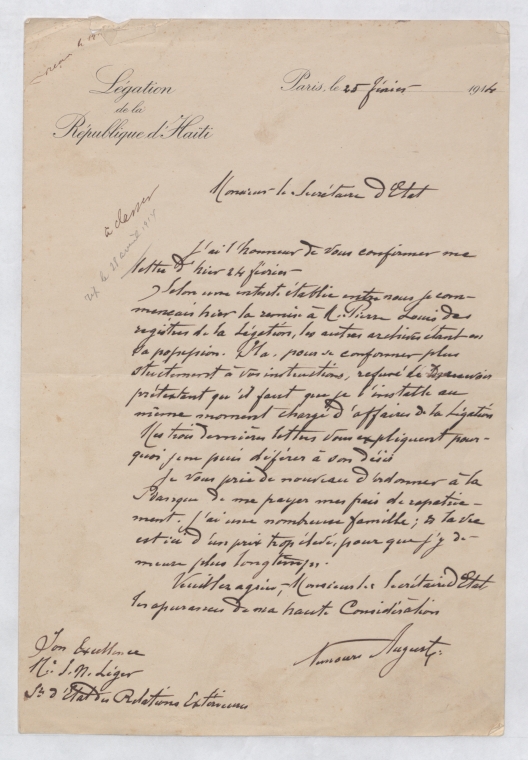 Légation
de la
République d'Haïti
Paris, le 25 février 1914
à classer
rép. le 28 avril 1914
Monsieur le Secrétaire d'Etat
J'ai l'honneur de vous confirmer ma
lettre d'hier 24 février
Selon une entente établie entre nous je com-
mençais hier la remise à M. Pierre Louis des
registres de la Légation, les autres archives étant en
sa possession. Il a, pour se conformer plus
strictement à vos instructions, refusé de
prétextant qu'il faut que je l'installe au
même moment chargé d'affaires de la Légation
Mes trois dernières lettres vous expliquent pour-
quoi je ne puis déférer à son désir
Je vous prie de nouveau d'ordonner à la
Banque de me payer mes frais de rapatrie-
ment. J'ai une nombreuse famille; et la vie
est ici d'un prix trop élevé, pour que j'y de-
meure plus longtemps.
Veuillez agréer, Monsieur le Secrétaire d'Etat
les assurances de ma haute Considération
Nemours Auguste
Son Excellence
Mr. J. N. Léger
Sre d'Etat des Relations Extérieures